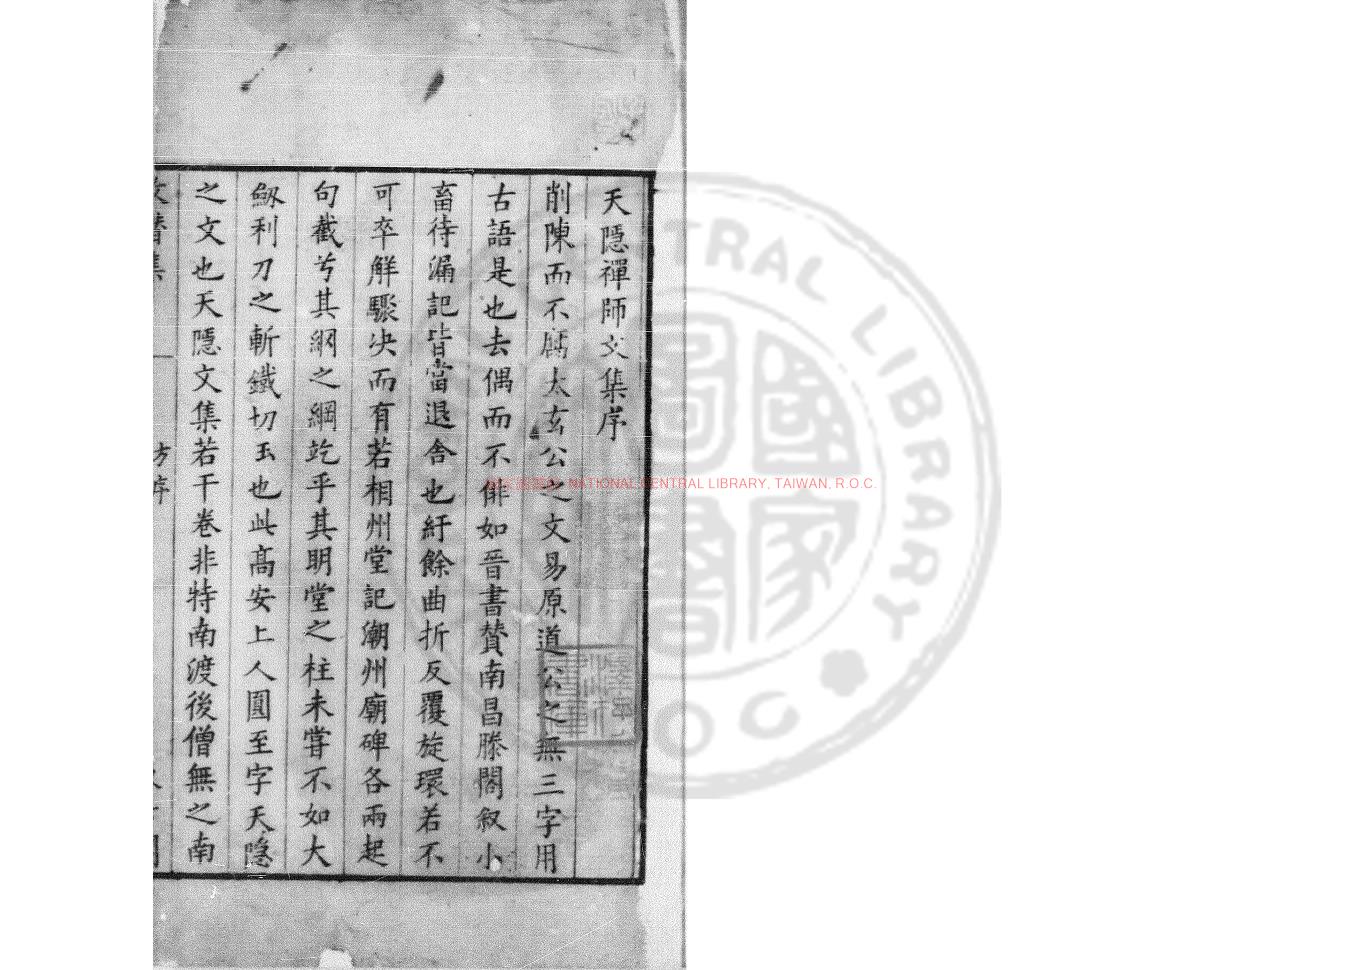 天隱禪師文集序
削陳而不腐太玄公之文易原道公之無三字用
古語是也去偶而不俳如晉書贊南昌滕閣叙小
畜待漏記皆當退舍也紆餘曲折反覆旋環若不
可卒解驟決而有若相州堂記潮州廟碑各兩起
句截兮其綱之綱訖乎其明堂之柱未甞不如大
劒利刀之斬鐵切玉也此高安上人圓至字天隱
之文也天隱文集若干卷非特南渡後僧無之南
NATIONAL CENTRAL LIBRARY, TAIWAN, R.O.C.